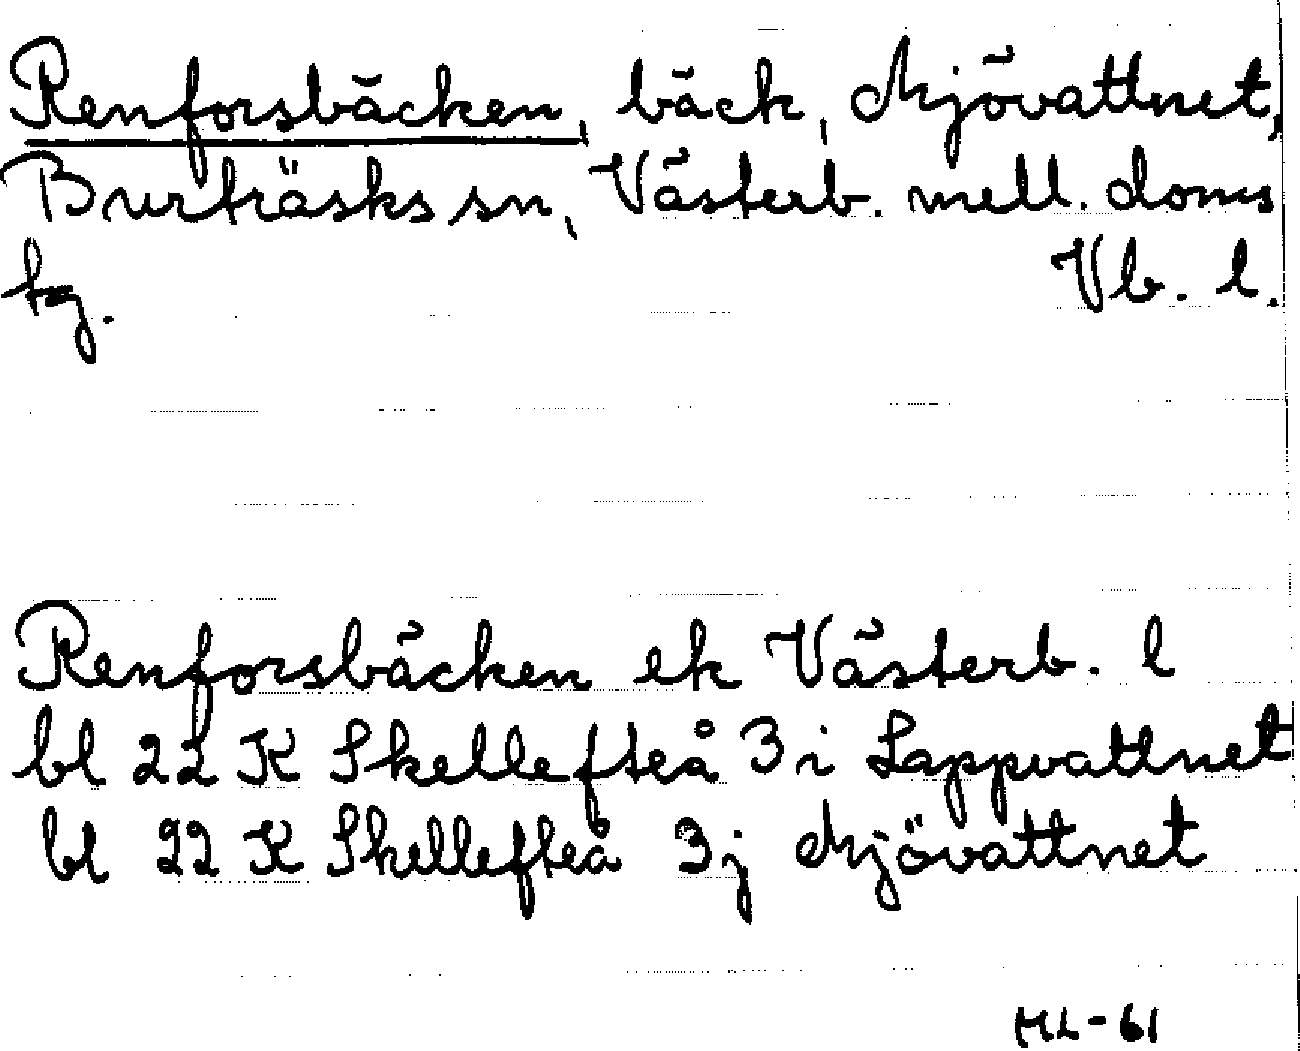 Renforsbäcken, bäck, Mjövattnet,
Burträsks sn, Västerb. mell. doms
tg. Vb. l.
Renforsbäcken ek Västerb. l
bl 22 K Skellefteå 3 i Lappvattnet
bl 22 K Skellefteå 3 j Mjövattnet
ML-61